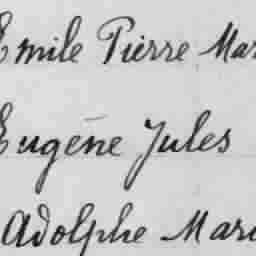 Emile Pierre Mar
Eugène Jules
Adolphe Mari